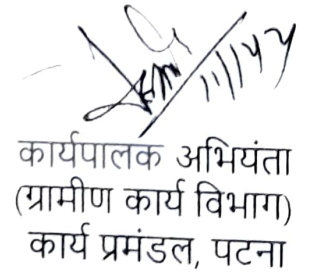 कार्यपालक अभियंता
(ग्रामीण कार्य विभाग)
कार्य प्रमंडल, पटना